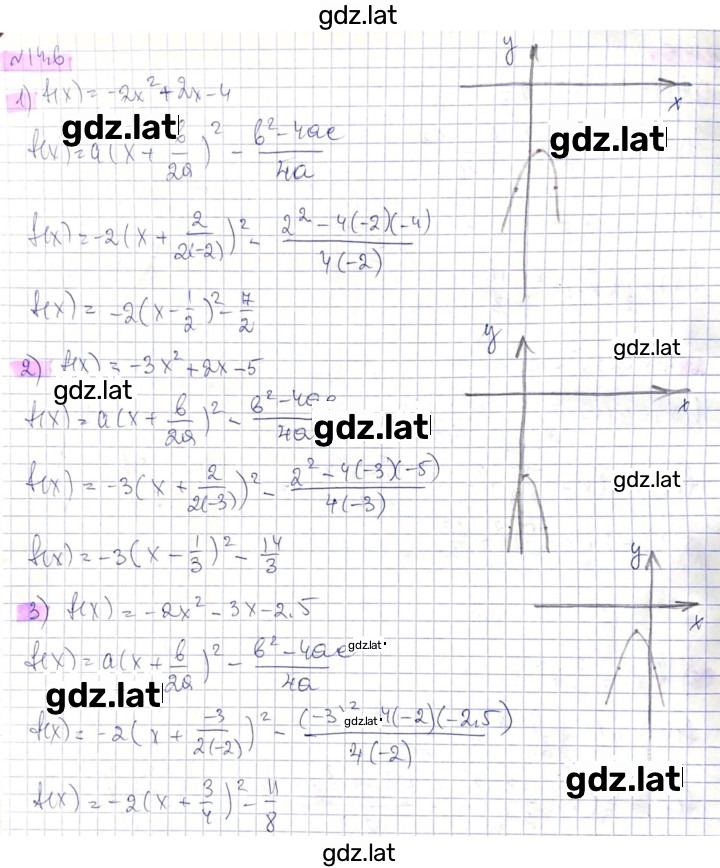 gdz.lat
№14.6
1) f(x) = -2x² + 2x - 4
gdz.lat
f(x) = a(x + b/2a)² - (b² - 4ac)/4a
f(x) = -2(x + 2/2(-2))² - (2² - 4(-2)(-4))/4(-2)
f(x) = -2(x - 1/2)² - 7/2
y
x
gdz.lat
2) f(x) = -3x² + 2x - 5
gdz.lat
f(x) = a(x + b/2a)² - (b² - 4ac)/4a
gdz.lat
f(x) = -3(x + 2/2(-3))² - (2² - 4(-3)(-5))/4(-3)
f(x) = -3(x - 1/3)² - 14/3
y
gdz.lat
x
gdz.lat
3) f(x) = -2x² - 3x - 2.5
f(x) = a(x + b/2a)² - (b² - 4ac)/4a
gdz.lat
gdz.lat
f(x) = -2(x + -3/2(-2))² - ((-3)² - 4(-2)(-2.5))/4(-2)
gdz.lat
f(x) = -2(x + 3/4)² - 11/8
y
x
gdz.lat
gdz.lat